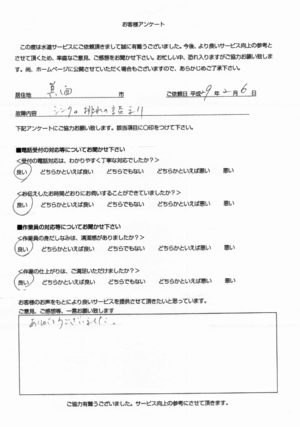 お客様アンケート
この度は水道サービスにご依頼頂きまして誠に有難うございました。今後、より良いサービス向上の参考と
させて頂くため、率直なご意見、ご感想をお聞かせ下さい。お忙しい中、恐れ入りますがご協力お願い致しま
す。尚、ホームページに公開させていただく場合もございますので、あらかじめご了承下さい。
居住地 箕面 ご依頼日 平成29年2月6日
故障内容 シンクの排水の詰まり
下記アンケートにご協力お願い致します。該当項目に〇印をつけて下さい。
■電話受付の対応等についてお聞かせ下さい
<受付の電話対応は、わかりやすく丁寧な対応でしたか?>
良い どちらかといえば良い どちらでもない どちらかといえば悪い 悪い
<お伝えしたお時間どおりにお伺いすることができていましたか?>
良い どちらかといえば良い どちらでもない どちらかといえば悪い 悪い
■作業員の対応等についてお聞かせ下さい
<作業員の身だしなみは、清潔感がありましたか?>
良い どちらかといえば良い どちらでもない どちらかといえば悪い 悪い
<作業の仕上がりは、ご満足いただけましたか?>
良い どちらかといえば良い どちらでもない どちらかといえば悪い 悪い
お客様のお声をもとにより良いサービスを提供させて頂きたいと思っています。
ご意見、ご感想等、一言お願い致します
ありがとうございました。
ご協力有難うございました。サービス向上の参考にさせて頂きます。